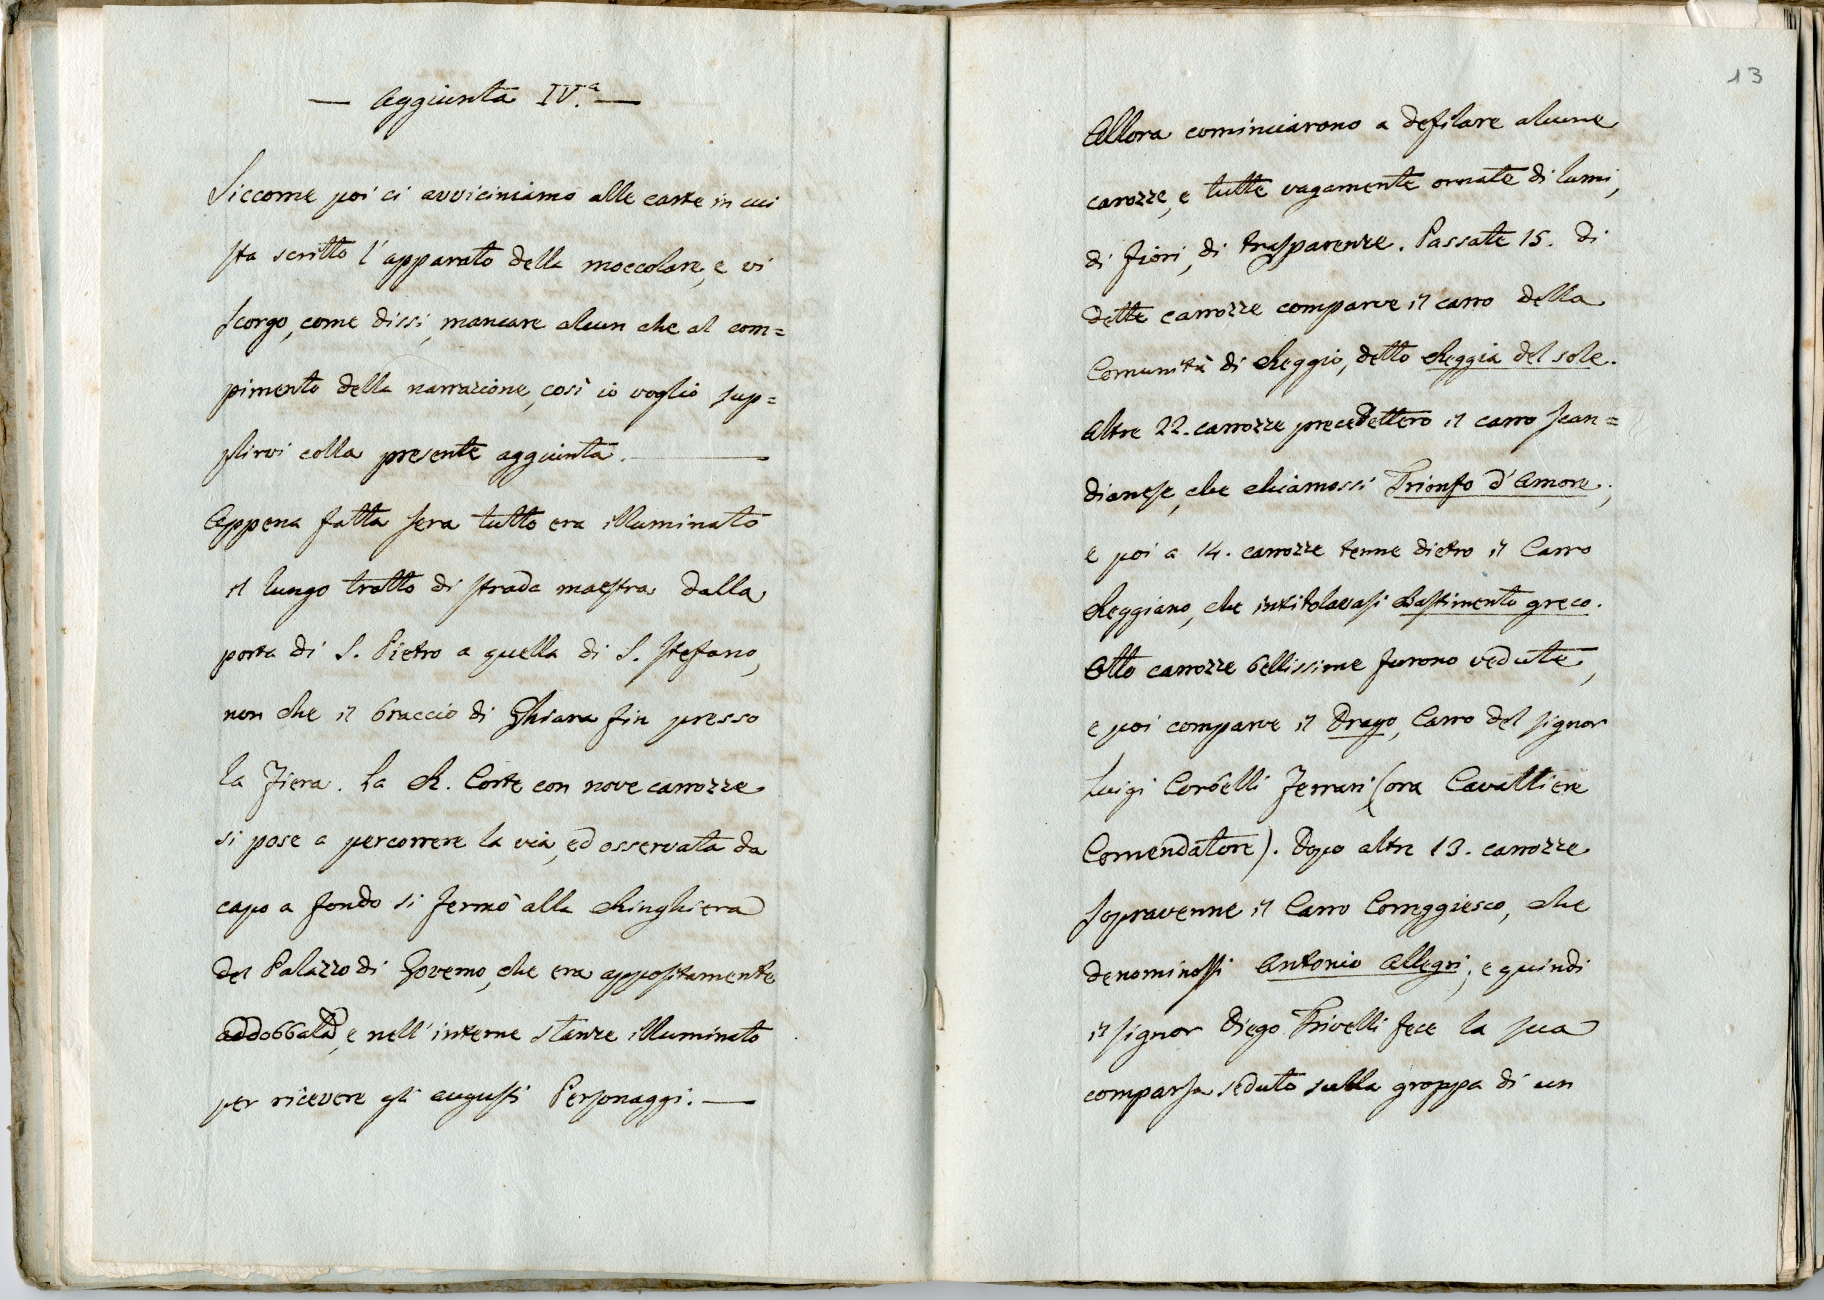 — Aggiunta IV.a —
Siccome poi ci avviciniamo alle carte in cui
sta scritto l'apparato della moccolare, e vi
scorgo, come dissi, mancare alcun che al com=
pimento della narrazione, così io voglio sup=
plirvi colla presente aggiunta. —
Appena fatta sera tutto era illuminato
il lungo tratto di strada maestra dalla
porta di S. Pietro a quella di S. Stefano,
non che il braccio di Ghiara fin presso
la Fiera. La R. Corte con nove carrozze
si pose a percorrere la via, ed osservata da
capo a fondo si fermò alla Ringhiera
del Palazzo di Governo, che era appositamente
addobbata, e nell'interne stanze illuminato
per ricevere gli augusti Personaggi. —
13
Allora cominciarono a defilare alcune
carozze, e tutte vagamente ornate di lumi,
di fiori, di trasparenze. Passate 15. di
dette carrozze comparve il carro della
Comunità di Reggio, detto Reggia del sole.
Altre 22. carrozze precedettero il carro Scan=
dianese, che chiamossi Trionfo d'Amore;
e poi a 14. carrozze tenne dietro il Carro
Reggiano, che intitolavasi Bastimento greco.
Otto carrozze bellissime furono vedute,
e poi comparve il Drago, Carro del signor
Luigi Corbelli Ferrari (ora Cavalliere
Comendatore). Dopo altre 13. carrozze
sopravenne il Carro Correggiesco, che
denominossi Antonio Allegri; e quindi
il signor Diego Trivelli fece la sua
comparsa seduto sulla groppa di un